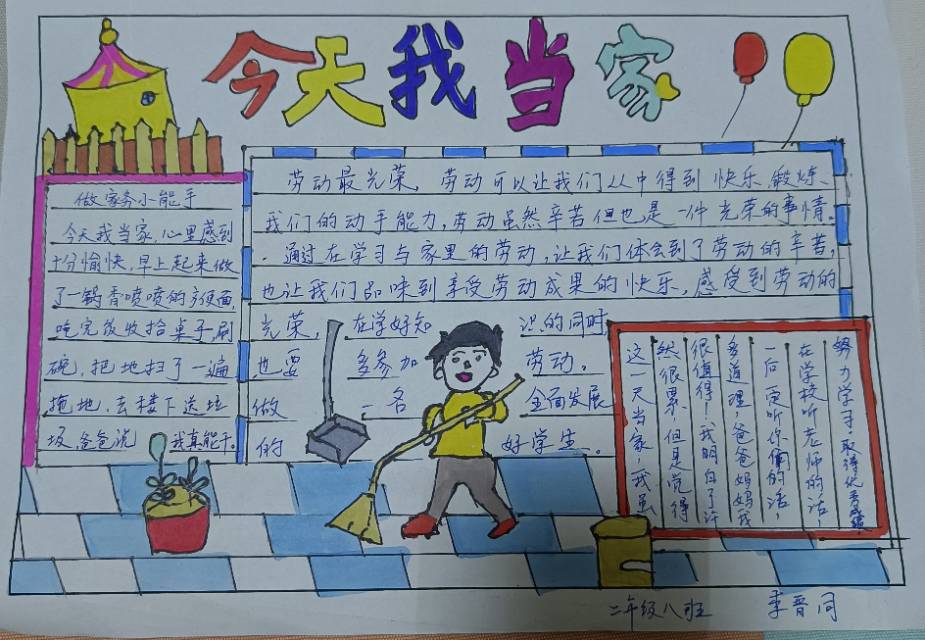 今天我当家
做家务小能手
今天我当家,心里感到
十分愉快,早上起来做
了一锅香喷喷的方便面,
吃完饭收拾桌子,刷
碗,把地扫了一遍
拖地,去楼下送垃
圾,爸爸说 我真能干。
劳动最光荣,劳动可以让我们从中得到快乐,锻炼
我们的动手能力,劳动虽然辛苦但也是一件光荣的事情。
通过在学习与家里的劳动,让我们体会到了劳动的辛苦,
也让我们品味到享受劳动成果的快乐,感受到劳动的
光荣,在学好知识的同时
也要多多参加劳动。
做一名全面发展
的好学生。
这一天当家,我虽
然很累,但是觉得
很值得!我明白了许
多道理,爸爸妈妈我
一后要听你俩的话,
在学校听老师的话,
努力学习.取得优秀成绩
二年级八班 李晋同